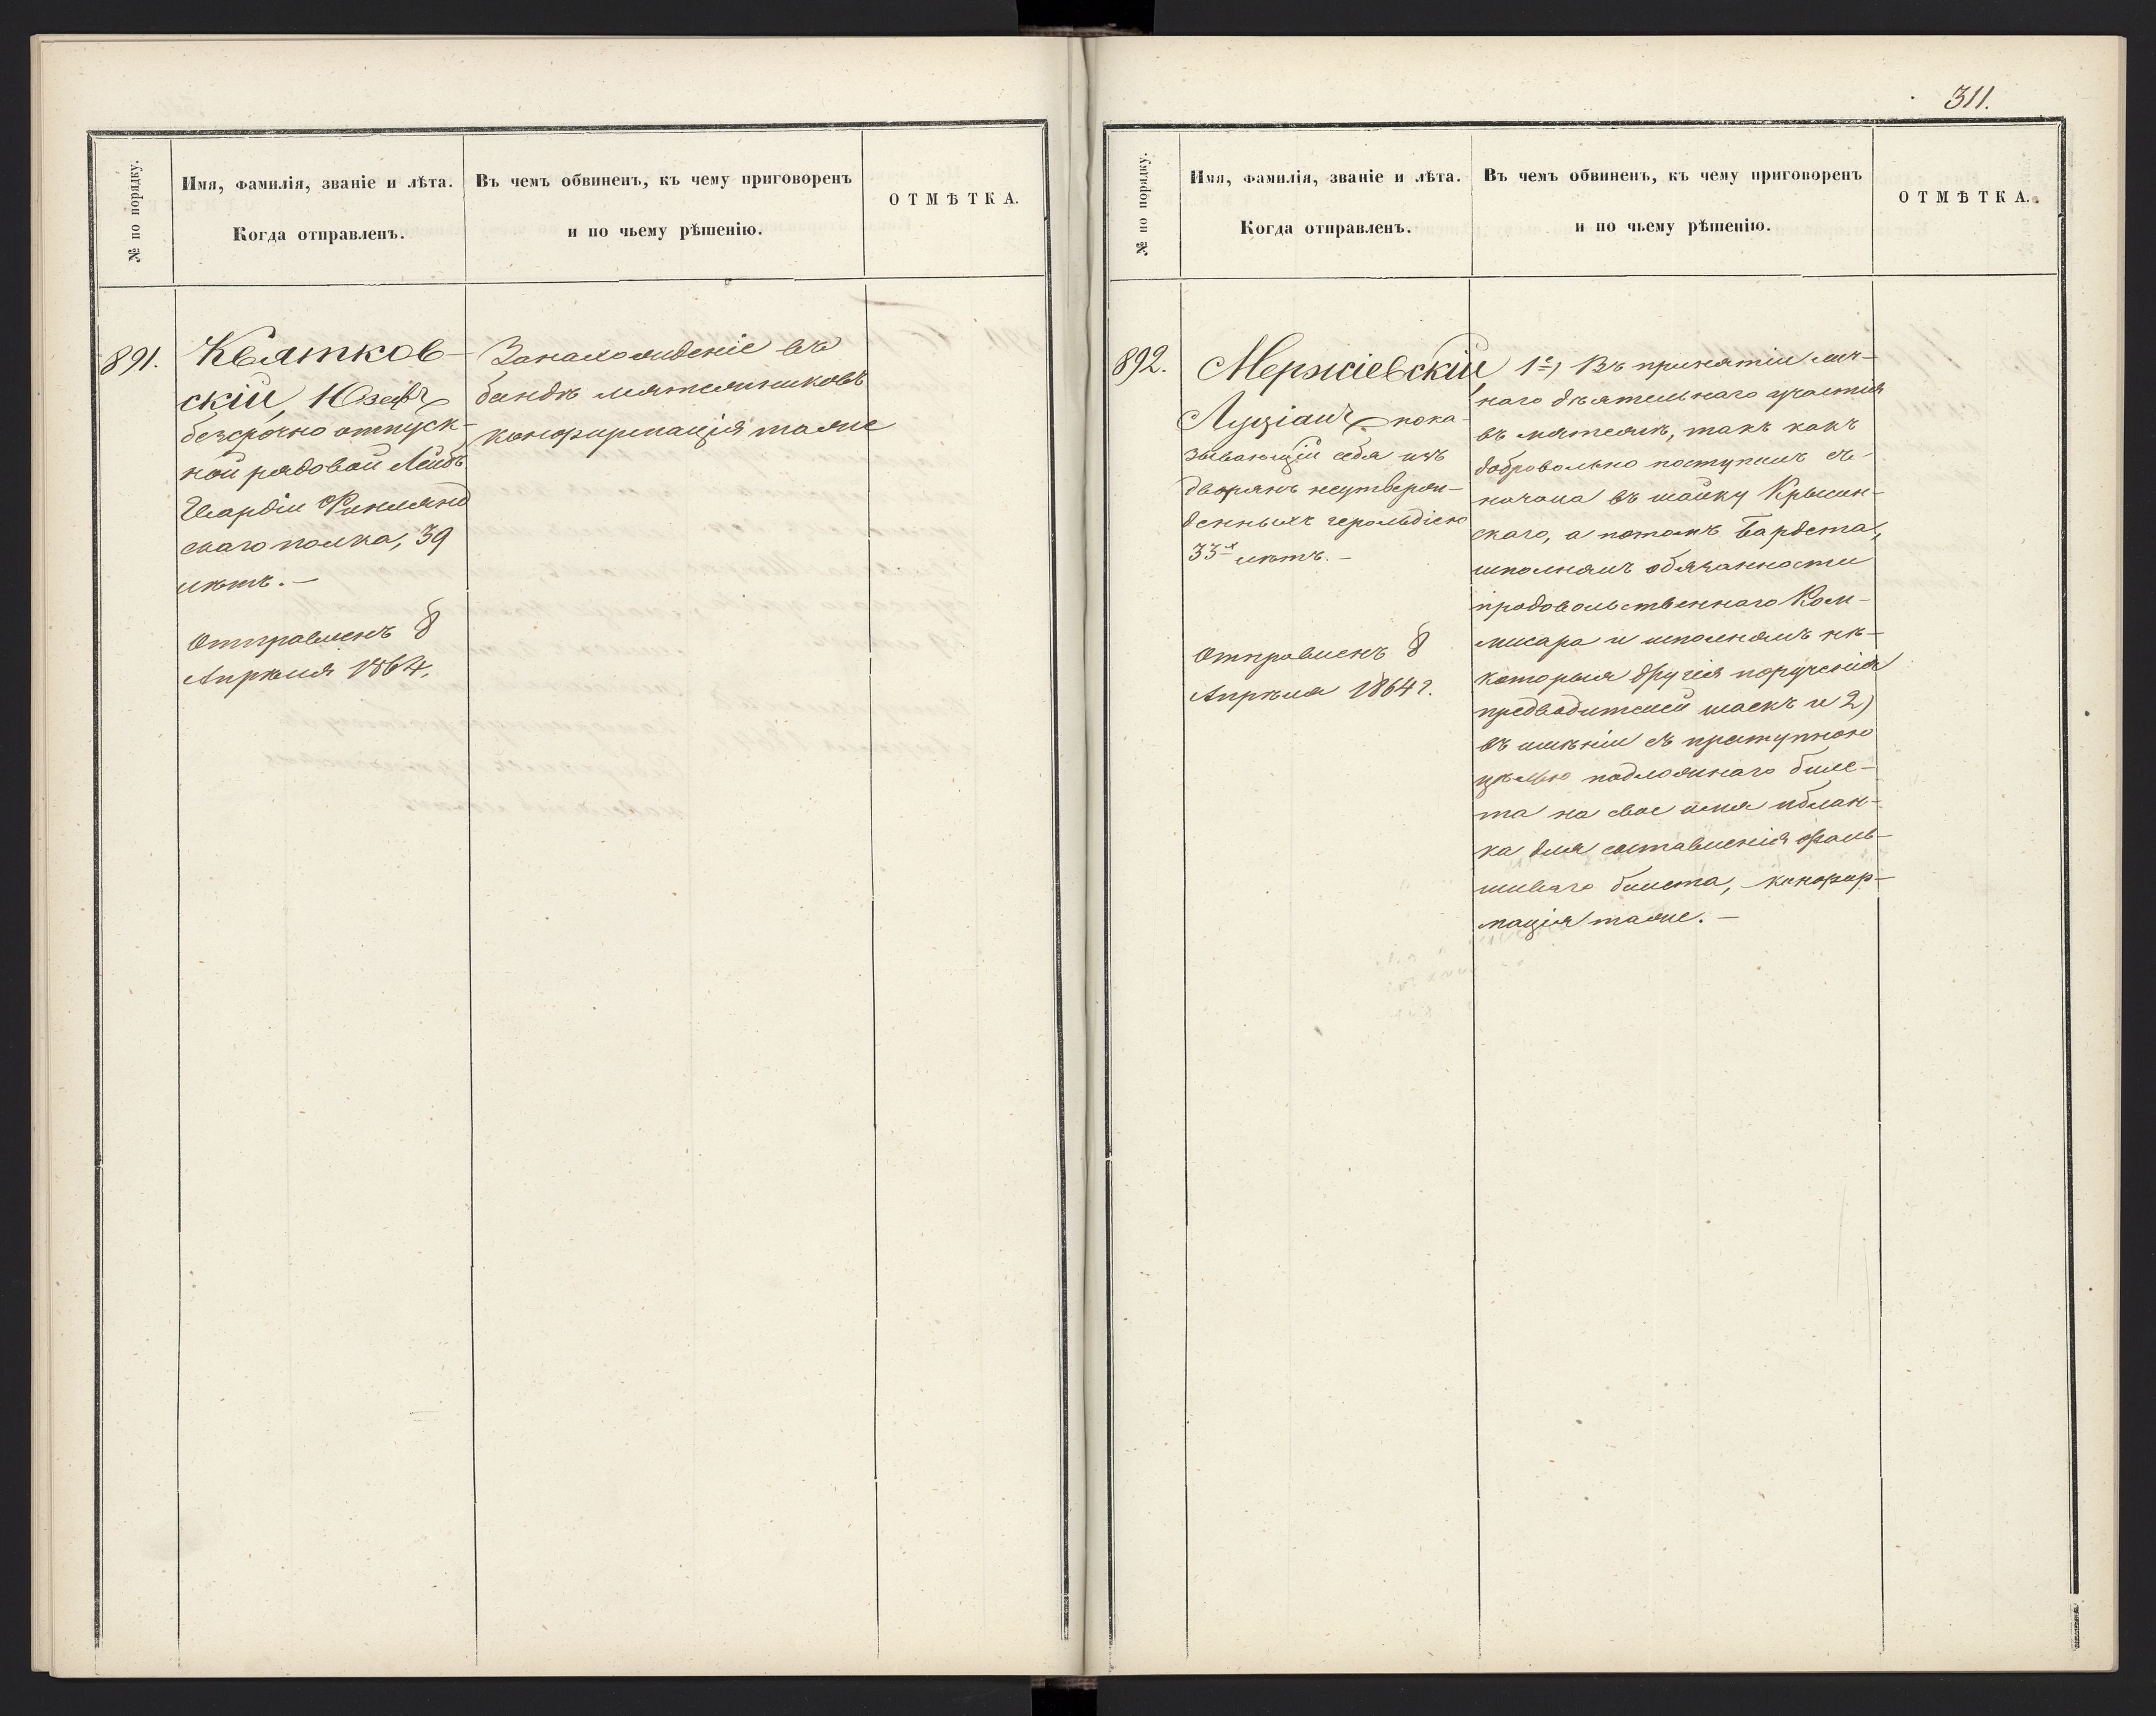 № по порядку.
Имя, фамилія, званіе и лѣта.
Когда отправленъ.
Въ чемъ обвиненъ, къ чему приговоренъ
и по чьему рѣшенію.
ОТМѢТКА.
891.
Квятков-
скій, Юзефъ
безсрочно отпуск-
ной рядовой Лейбъ
Гвардіи Финлянд
скаго полка, 39
лѣтъ. —
Отправленъ 8
Апрѣля 1864.
Занахожденіе въ
бандѣ мятежниковъ
конфирмація таже
311.
№ по порядку.
Имя, фамилія, званіе и лѣта.
Когда отправленъ.
Въ чемъ обвиненъ, къ чему приговоренъ
и по чьему рѣшенію.
ОТМѢТКА.
892.
Мержіевскій
Луціанъ, пока-
зывающій себя изъ
дворянъ неутверж-
денныхъ герольдіею
33х лѣтъ. —
Отправленъ 8
Апрѣля 1864 г.
1е, Въ принятіи лич-
наго дѣятельнаго участія
въ мятежѣ, такъ какъ
добровольно поступилъ съ-
начала въ шайку Крысин-
скаго, а потомъ Бардета,
исполнялъ обязанности
продовольственнаго Ком-
мисара и исполнялъ нѣ-
которыя другія порученія
предводителей шаекъ и 2)
въ имѣніи съ преступною
цѣлью подложнаго биле-
та на свое имя и блан-
ка для составленія фаль-
шиваго билета, конфир-
мація таже. —